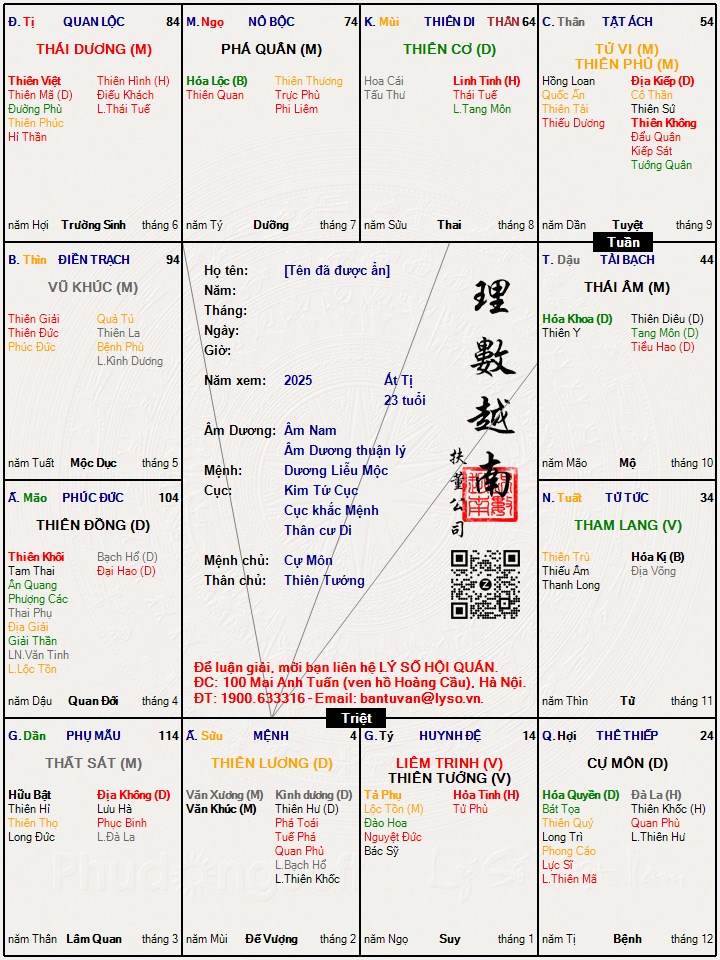 Đ. Tị QUAN LỘC 84
THÁI DƯƠNG (M)
Thiên Việt Thiên Hình (H)
Thiên Mã (D) Điếu Khách
Đường Phù L.Thái Tuế
Thiên Phúc
Hỉ Thần
năm Hợi Trường Sinh tháng 6
M. Ngọ NÔ BỘC 74
PHÁ QUÂN (M)
Hóa Lộc (B) Thiên Thương
Thiên Quan Trực Phù
Phi Liêm
năm Tý Dưỡng tháng 7
K. Mùi THIÊN DI THÂN 64
THIÊN CƠ (D)
Hoa Cái Linh Tinh (H)
Tấu Thư Thái Tuế
L.Tang Môn
năm Sửu Thai tháng 8
C. Thân TẬT ÁCH 54
TỬ VI (M)
THIÊN PHỦ (M)
Hồng Loan Địa Kiếp (D)
Quốc Ấn Cô Thần
Thiên Tài Thiên Sứ
Thiếu Dương Thiên Không
Đẩu Quân
Kiếp Sát
Tướng Quân
năm Dần Tuyệt tháng 9
Tuần
B. Thìn ĐIỀN TRẠCH 94
VŨ KHÚC (M)
Thiên Giải Quả Tú
Thiên Đức Thiên La
Phúc Đức Bệnh Phù
L.Kình Dương
năm Tuất Mộc Dục tháng 5
Họ tên: [Tên đã được ẩn]
Năm:
Tháng:
Ngày:
Giờ:
Năm xem: 2025 Ất Tị
23 tuổi
Âm Dương: Âm Nam
Âm Dương thuận lý
Mệnh: Dương Liễu Mộc
Cục: Kim Tứ Cục
Cục khắc Mệnh
Thân cư Di
Mệnh chủ: Cự Môn
Thân chủ: Thiên Tướng
理數越南
扶董公司
Để luận giải, mời bạn liên hệ LÝ SỐ HỘI QUÁN.
ĐC: 100 Mai Anh Tuấn (ven hồ Hoàng Cầu), Hà Nội.
ĐT: 1900.633316 - Email: bantuvan@lyso.vn.
T. Dậu TÀI BẠCH 44
THÁI ÂM (M)
Hóa Khoa (D) Thiên Diêu (D)
Thiên Y Tang Môn (D)
Tiểu Hao (D)
năm Mão Mộ tháng 10
Ấ. Mão PHÚC ĐỨC 104
THIÊN ĐỒNG (D)
Thiên Khôi Bạch Hổ (D)
Tam Thai Đại Hao (D)
Ân Quang
Phượng Các
Thai Phụ
Địa Giải
Giải Thần
LN.Văn Tinh
L.Lộc Tồn
năm Dậu Quan Đới tháng 4
N. Tuất TỬ TỨC 34
THAM LANG (V)
Thiên Trù Hóa Kị (B)
Thiếu Âm Địa Võng
Thanh Long
năm Thìn Tử tháng 11
Triệt
G. Dần PHỤ MẪU 114
THẤT SÁT (M)
Hữu Bật Địa Không (D)
Thiên Hỉ Lưu Hà
Thiên Thọ Phục Binh
Long Đức L.Đà La
năm Thân Lâm Quan tháng 3
Ấ. Sửu MỆNH 4
THIÊN LƯƠNG (D)
Văn Xương (M) Kình dương (D)
Văn Khúc (M) Thiên Hư (D)
Phá Toái
Tuế Phá
Quan Phủ
L.Bạch Hổ
L.Thiên Khốc
năm Mùi Đế Vượng tháng 2
G. Tý HUYNH ĐỆ 14
LIÊM TRINH (V)
THIÊN TƯỚNG (V)
Tả Phụ Hỏa Tinh (H)
Lộc Tồn (M) Tử Phù
Đào Hoa
Nguyệt Đức
Bác Sỹ
năm Ngọ Suy tháng 1
Q. Hợi THÊ THIẾP 24
CỰ MÔN (D)
Hóa Quyền (D) Đà La (H)
Bát Tọa Thiên Khốc (H)
Thiên Quý Quan Phù
Long Trì L.Thiên Hư
Phong Cáo
Lực Sĩ
L.Thiên Mã
năm Tị Bệnh tháng 12